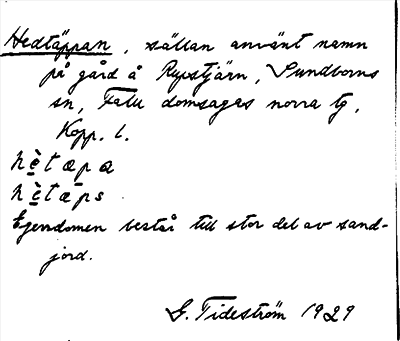 Hedtäppan, sällan använt namn
på gård å Rupstjärn, Sundborns
sn, Falu domsagas norra tg,
Kopp. l.
hὲtæpa
hὲtæps
Egendomen består till stor del av sand-
jord.
G. Tideström 1929